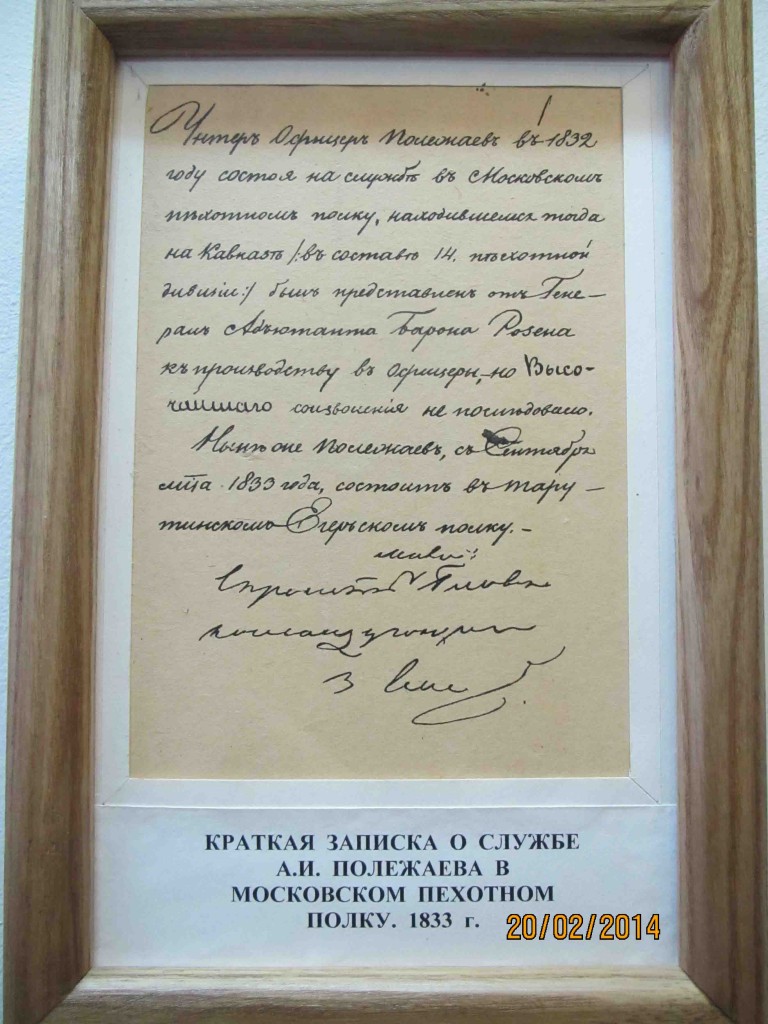 Унтеръ Офицеръ Полежаевъ въ 1832
году состоя на службѣ въ Московскомъ
пѣхотномъ полку, находившемся тогда
на Кавказѣ /:въ составѣ 14. пѣхотной
дивизіи:/ былъ представленъ отъ Гене-
ралъ Адъютанта Барона Розена
къ производству въ Офицеры, но Высо-
чайшаго соизволенія не послѣдовало.
Нынѣ оне Полежаевъ, съ Сентября
м-ца 1833 года, состоитъ въ Тару-
тинскомъ Егерьскомъ полку.-
командующій
КРАТКАЯ ЗАПИСКА О СЛУЖБЕ
А.И. ПОЛЕЖАЕВА В
МОСКОВСКОМ ПЕХОТНОМ
ПОЛКУ. 1833 г.
20/02/2014